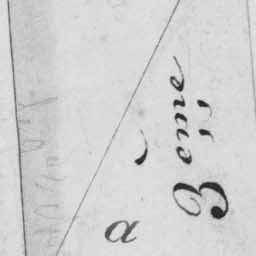 3 eme
a